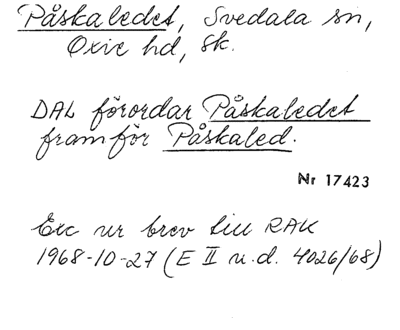 Påskaledet, Svedala sn,
Oxie hd, Sk.
DAL förordar Påskaledet
framför Påskaled.
Nr 17423
Exc ur brev till RAK
1968-10-27 (E II u.d. 4026/68)